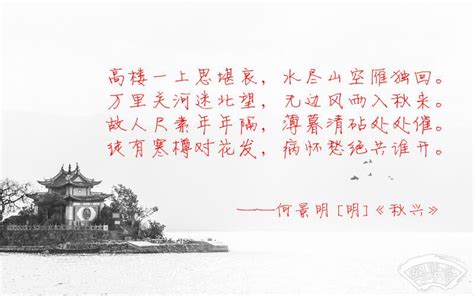 高楼一上思堪哀，水尽山空雁独回。
万里关河迷北望，无边风雨入秋来。
故人尺素年年隔，薄暮清砧处处催。
纵有寒樽对花发，病怀愁绝共谁开。
——何景明[明]《秋兴》